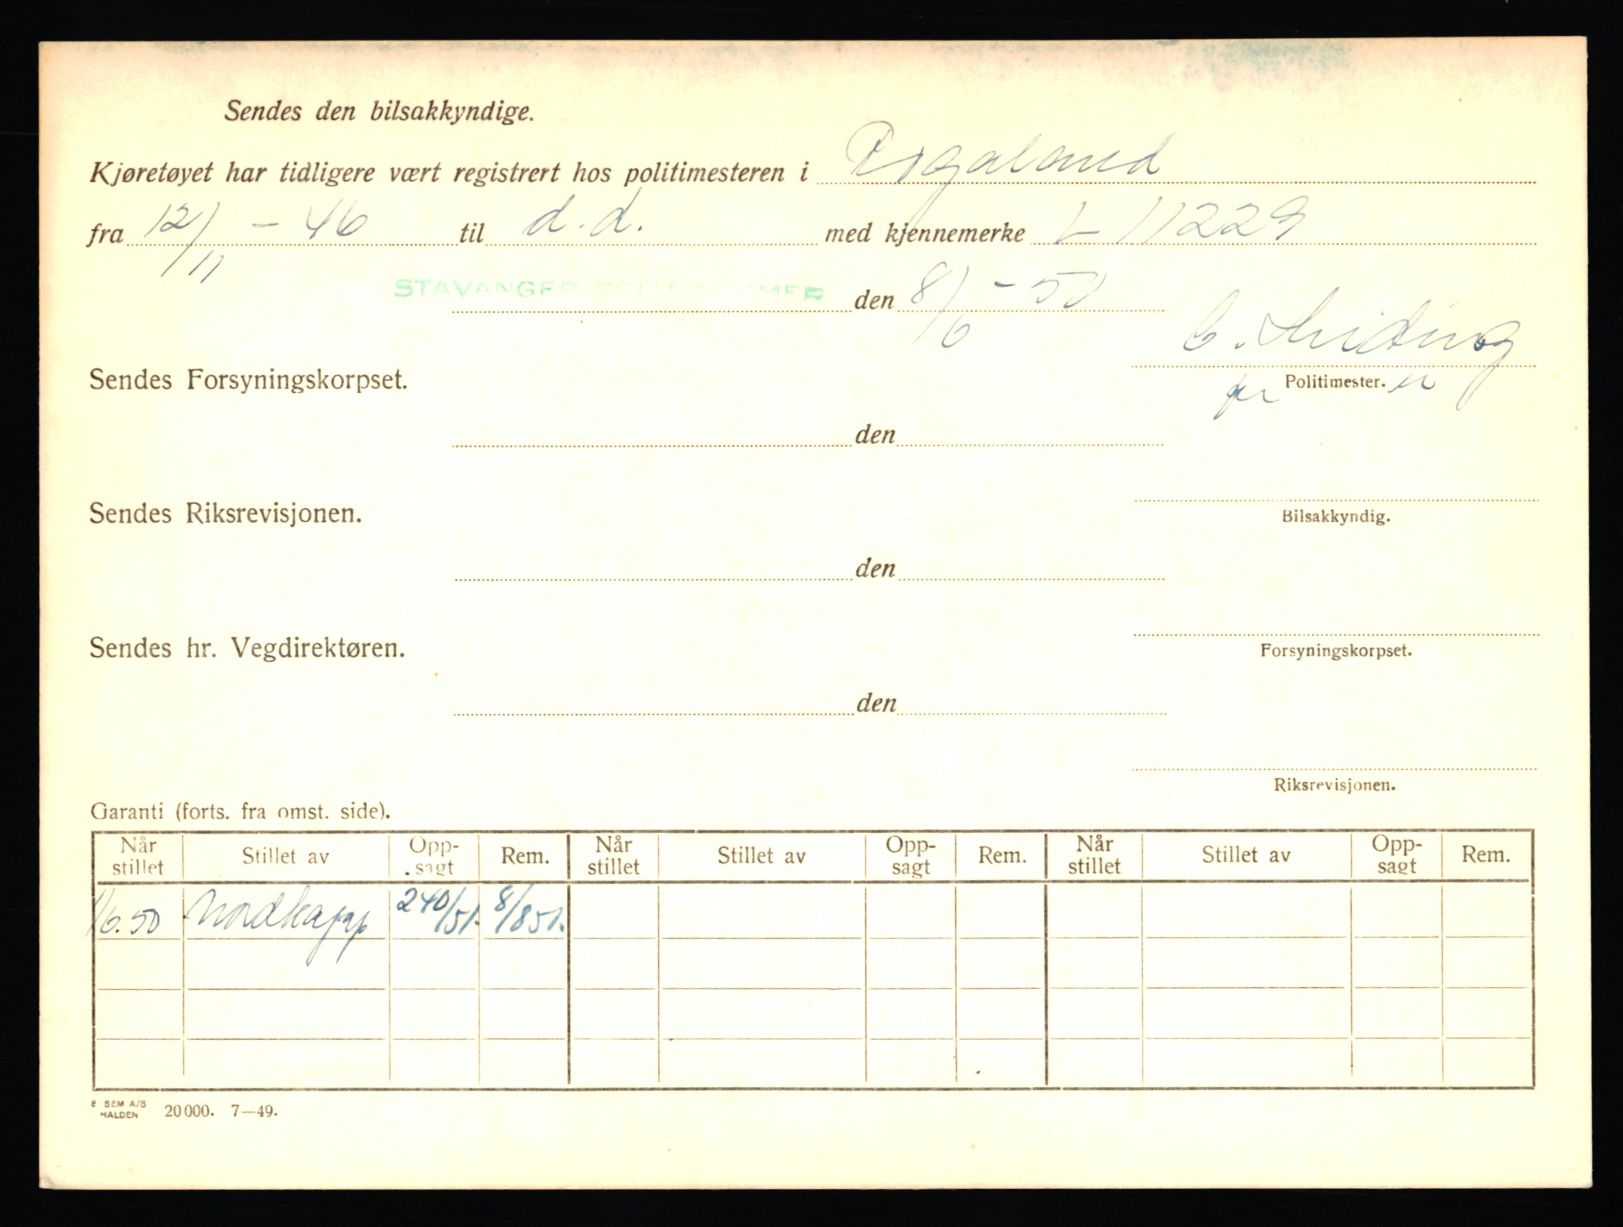 Sendes den bilsakkyndige.
Kjøretøyet har tidligere vært registrert hos politimesteren i Rogaland
fra 12/11 - 46 til d.d. med kjennemerke L 11229
STAVANGER POLITIKAMMER den 8/6 - 50
Sendes Forsyningskorpset.
Politimester.
den
Sendes Riksrevisjonen.
Bilsakkyndig.
den
Sendes hr. Vegdirektøren.
Forsyningskorpset.
den
Riksrevisjonen.
Garanti (forts. fra omst. side).
Når stillet Stillet av Opp-sagt Rem. Når stillet Stillet av Opp-sagt Rem. Når stillet Stillet av Opp-sagt Rem.
1/6.50 Nordkapp 240/51. 8/851.
SEM A/S HALDEN 20000. 7—49.